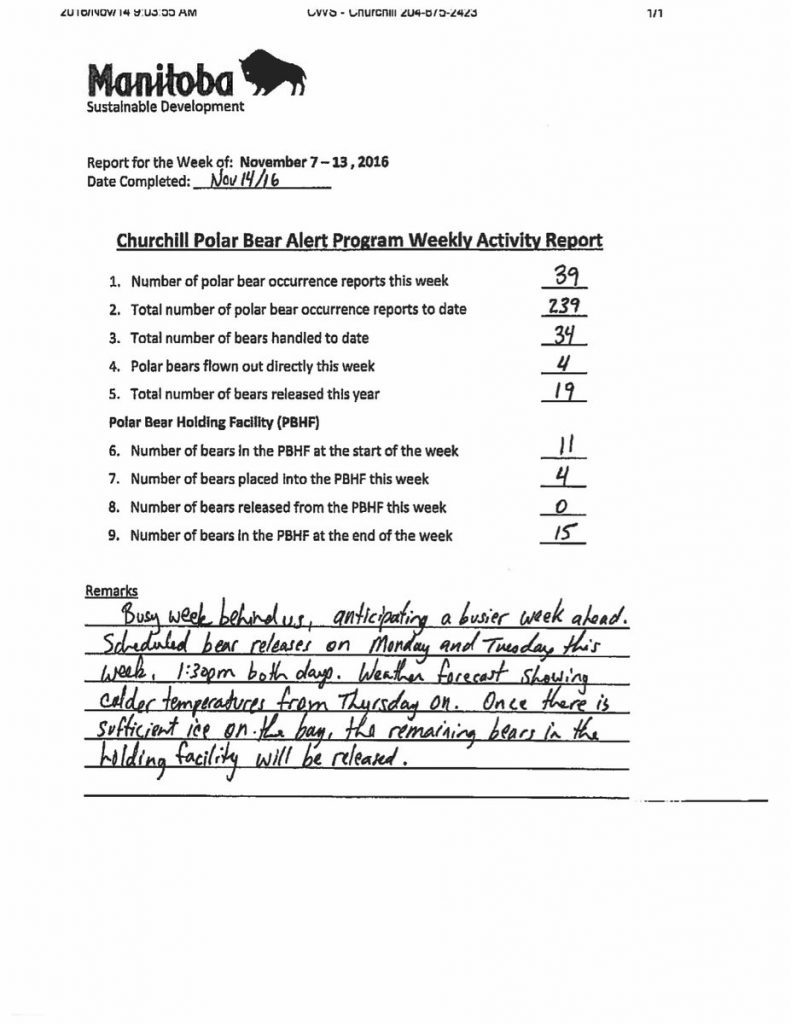 2016/Nov/14 9:03:55 AM CWS - Churchill 204-675-2423 1/1
Manitoba
Sustainable Development
Report for the Week of: November 7 – 13, 2016
Date Completed: Nov 14/16
Churchill Polar Bear Alert Program Weekly Activity Report
1. Number of polar bear occurrence reports this week 39
2. Total number of polar bear occurrence reports to date 239
3. Total number of bears handled to date 34
4. Polar bears flown out directly this week 4
5. Total number of bears released this year 19
Polar Bear Holding Facility (PBHF)
6. Number of bears in the PBHF at the start of the week 11
7. Number of bears placed into the PBHF this week 4
8. Number of bears released from the PBHF this week 0
9. Number of bears in the PBHF at the end of the week 15
Remarks
Busy week behind us, anticipating a busier week ahead.
Scheduled bear releases on Monday and Tuesday this
week, 1:30pm both days. Weather forecast showing
colder temperatures from Thursday on. Once there is
sufficient ice on the bay, the remaining bears in the
holding facility will be released.